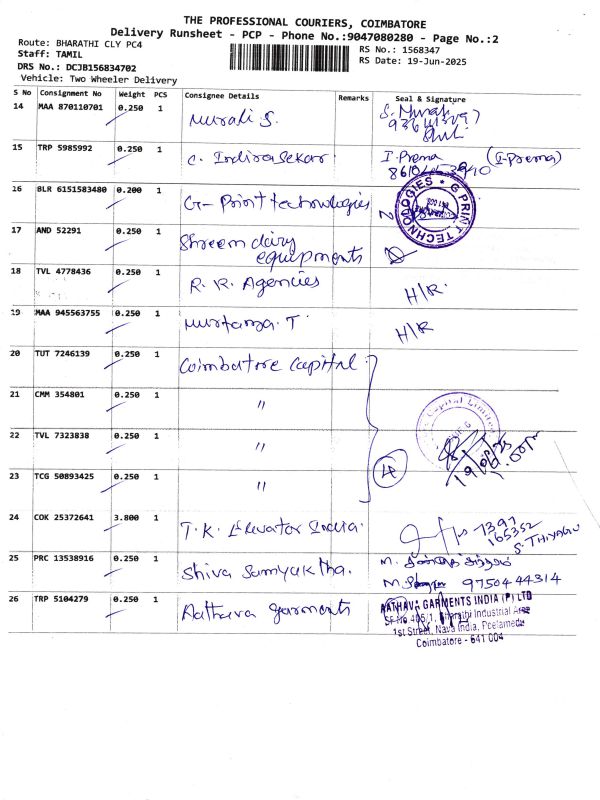 THE PROFESSIONAL COURIERS, COIMBATORE
Delivery Runsheet - PCP - Phone No.:9047080280 - Page No.:2
Route: BHARATHI CLY PC4
RS No.: 1568347
Staff: TAMIL
RS Date: 19-Jun-2025
DRS No.: DCJB156834702
Vehicle: Two Wheeler Delivery
S No Consignment No Weight PCS Consignee Details Remarks Seal & Signature
14 MAA 870110701 0.250 1 Murali S.
15 TRP 5985992 0.250 1 C. Indirasekar I. Prema (I. Prema)
16 BLR 6151583480 0.200 1 G- Print technologies
TECHNOLOGIES * G PRINT
17 AND 52291 0.250 1 Shreem dairy
equipments
18 TVL 4778436 0.250 1 R. R. Agencies H/R.
19 MAA 945563755 0.250 1 H/R
20 TUT 7246139 0.250 1 Coimbatore Capital
21 CMM 354801 0.250 1 "
Capital Limited
22 TVL 7323838 0.250 1 "
4
23 TCG 50893425 0.250 1 "
24 COK 25372641 3.800 1 T.K. Elevator India. 7397
165352
S. THIYAGU
25 PRC 13538916 0.250 1 Shiva Samyuktha.
9750444314
26 TRP 5104279 0.250 1 Aathava garments
AATHAVA GARMENTS INDIA (P) LTD
SF No 405/1, Bharathi Industrial Area
1st Street, Nava India, Peelamedu
Coimbatore - 641 004